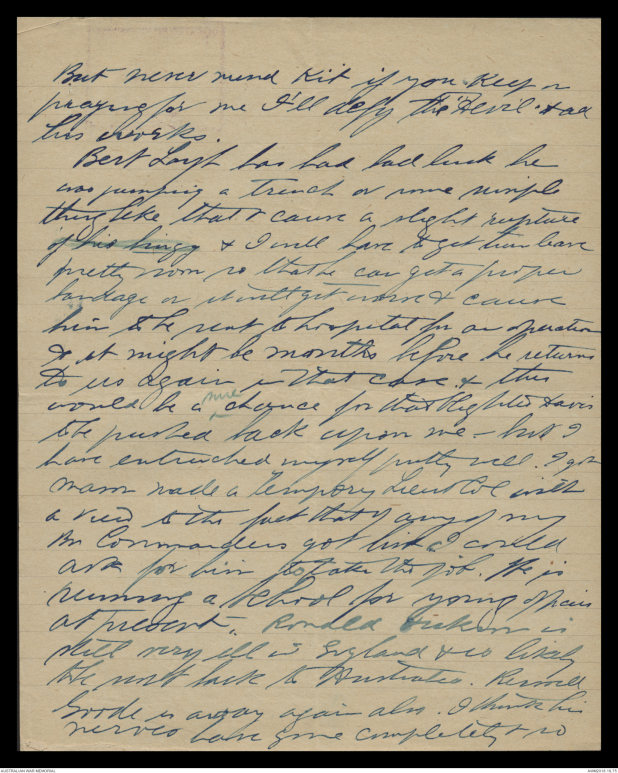 But never mind Kit if you keep on
praying for me I'll defy the "Devil" & all
his works.
Bert Layh has had bad luck he
was jumping a trench or some simple
thing like that & cause a slight rupture
& I will have to get him leave
pretty soon so that he can get a proper
bandage or it will get worse & cause
him to be sent to hospital for an operation
& it might be months before he returns
to us again in that case & this
would be a nice chance for that blighter Davis
to be pushed back upon me - but I
have entrenched myself pretty well. I got
Marm made a tempory Lieut Col with
a view to the fact that if any of my
Bn Commanders got hit I could
ask for him to take the job. He is
running a school for young officers
at present. Ronald Dickson is
still very ill in England & is likely
to be sent back to Australia. Russell
Goode is away again also. I think his
nerves have gone completely & so
AUSTRALIAN WAR MEMORIAL